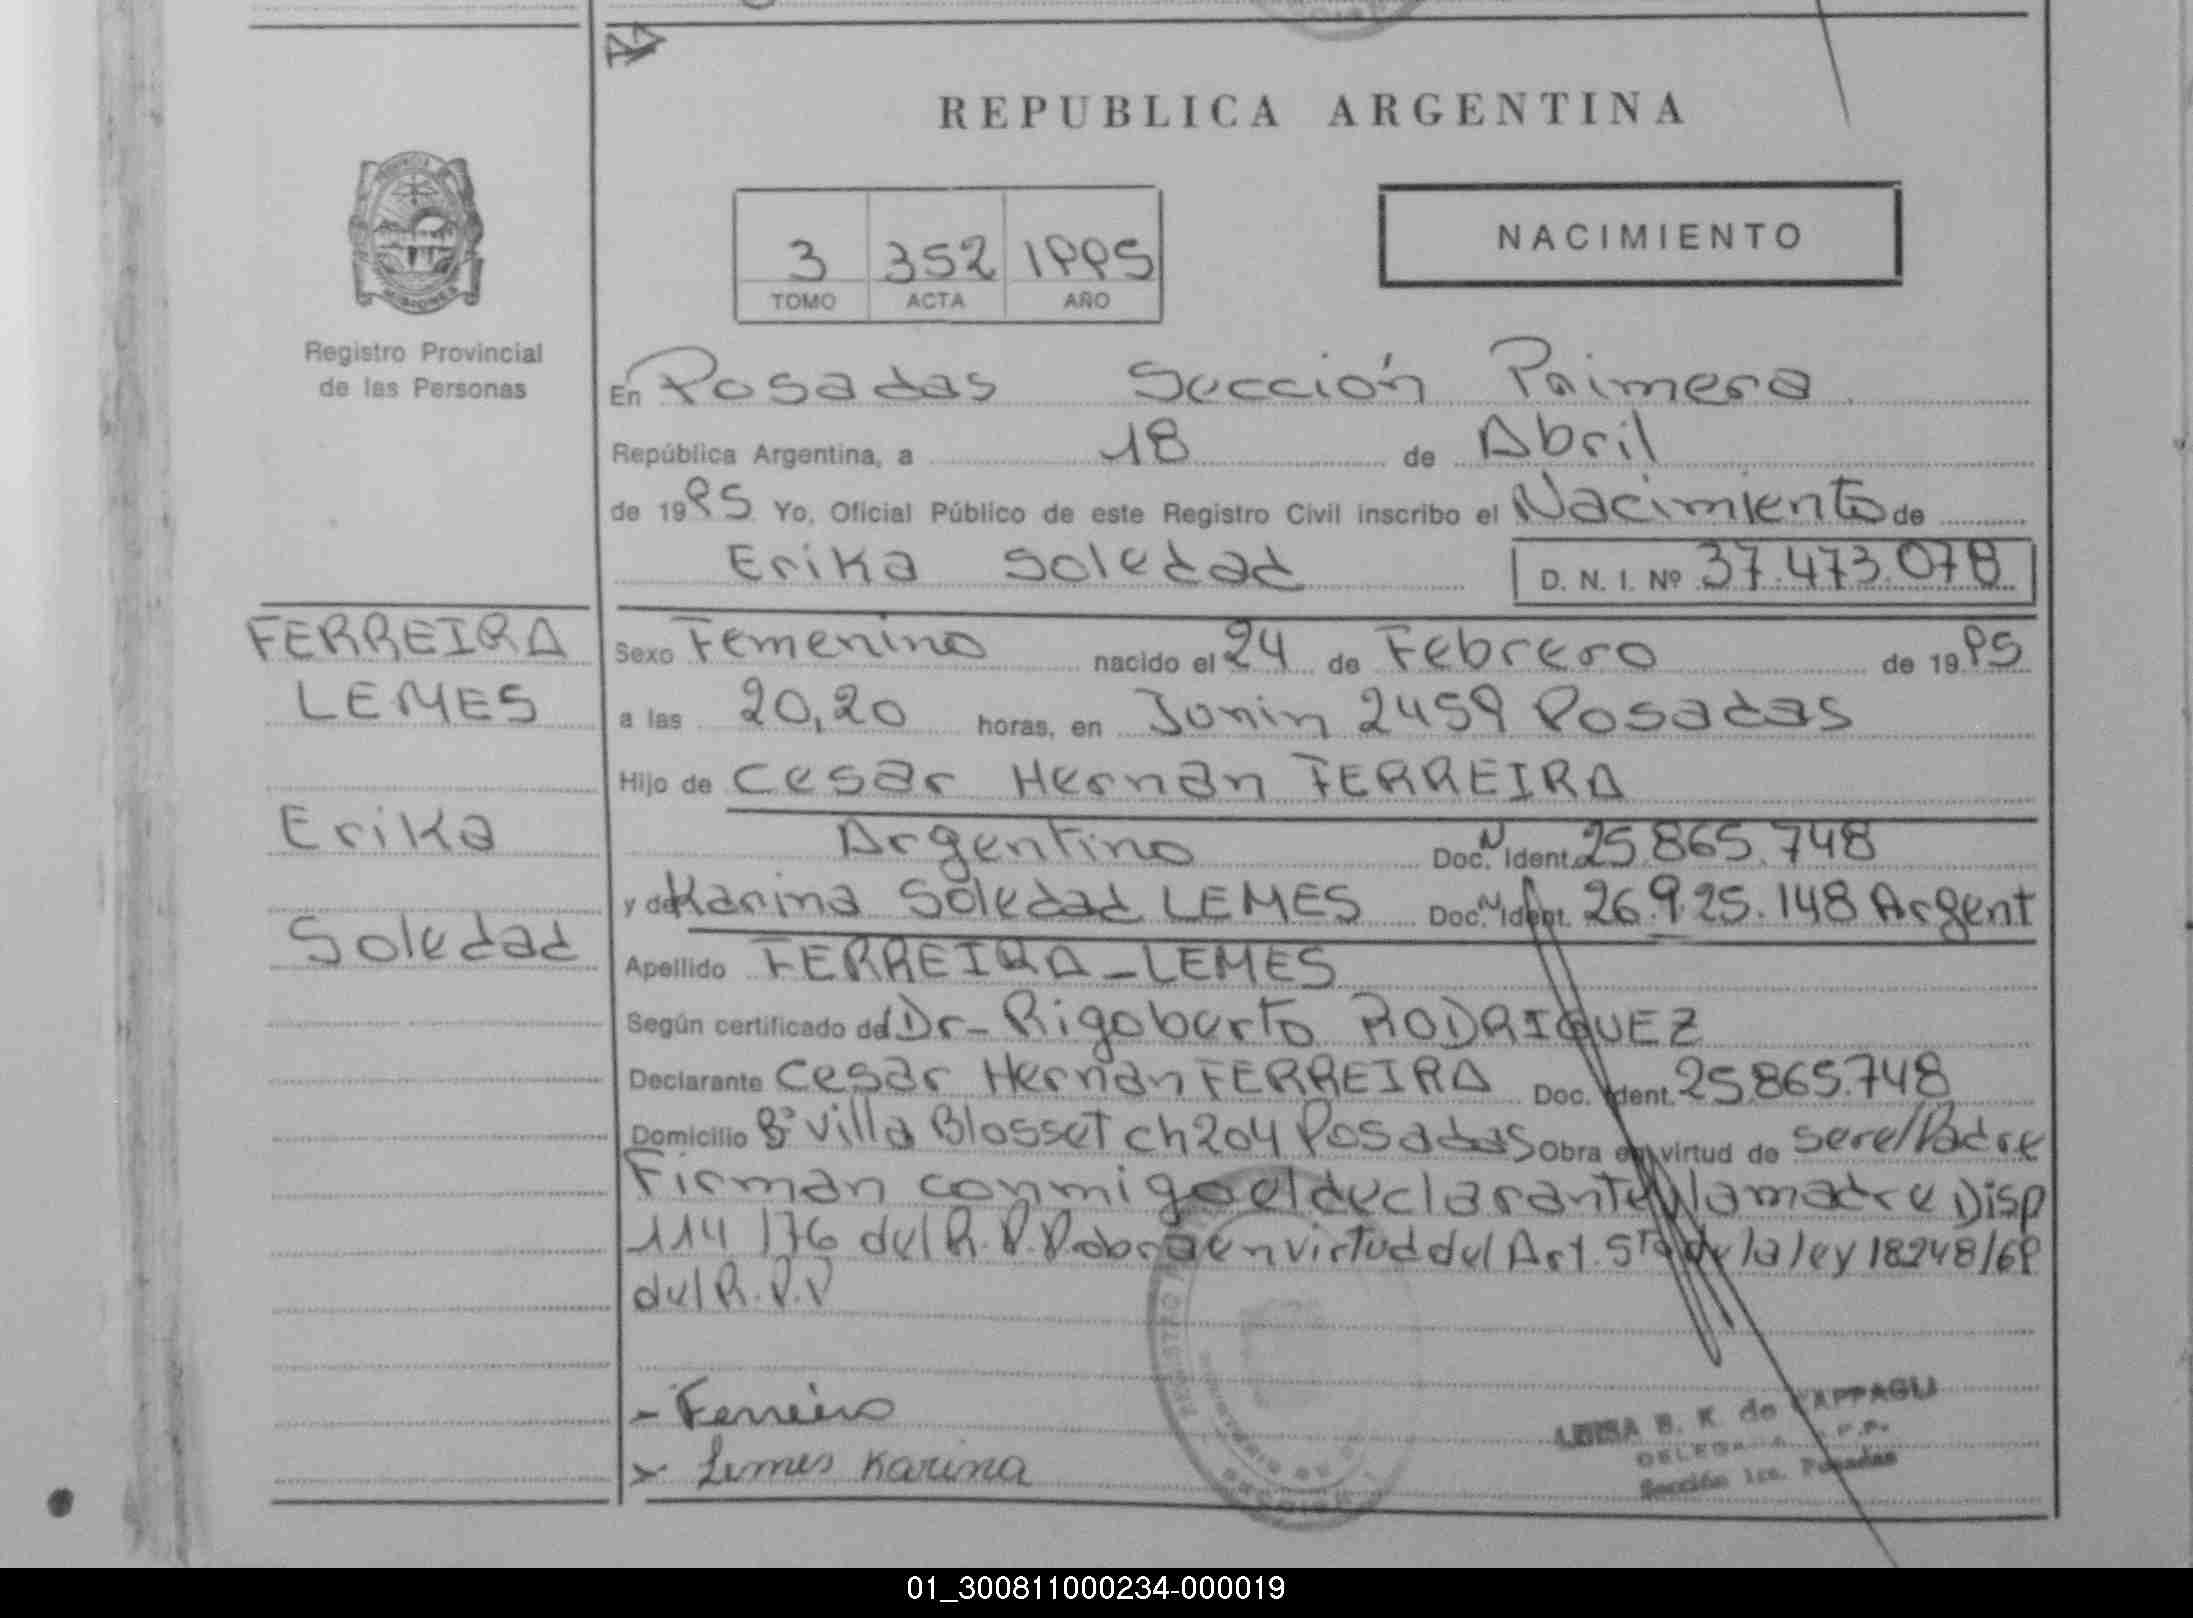 REPUBLICA ARGENTINA
NACIMIENTO
3 352 1995
TOMO ACTA AÑO
Registro Provincial
de las Personas
En Posadas Sección Primera
República Argentina, a 18 de Abril
de 1995 Yo, Oficial Público de este Registro Civil inscribo el Nacimiento de
Erika Soledad D. N. I. Nº 37.473.078
FERREIRA
LEMES
Erika
Soledad
Sexo Femenino nacido el 24 de Febrero de 1995
a las 20,20 horas, en Junin 2459 Posadas
Hijo de Cesar Hernan FERREIRA
Argentino Doc. N Ident. 25.865.748
y de Karina Soledad LEMES Doc. N Ident. 26.925.148 Argent
Apellido FERREIRA_LEMES
Según certificado del Dr- Rigoberto RODRIGUEZ
Declarante Cesar Hernan FERREIRA Doc. Ident. 25.865.748
Domicilio Bº Villa Blosset ch 204 Posadas Obra en virtud de ser el Padre
Firman conmigo el declarante y la madre Disp
114/76 del R.P.P obra en virtud del Art. 5to de la ley 18248/69
del R.P.P
- Ferreira
Lemes Karina
B. K. de CAPPAGLI
Sección 1ra. Posadas
01_300811000234-000019